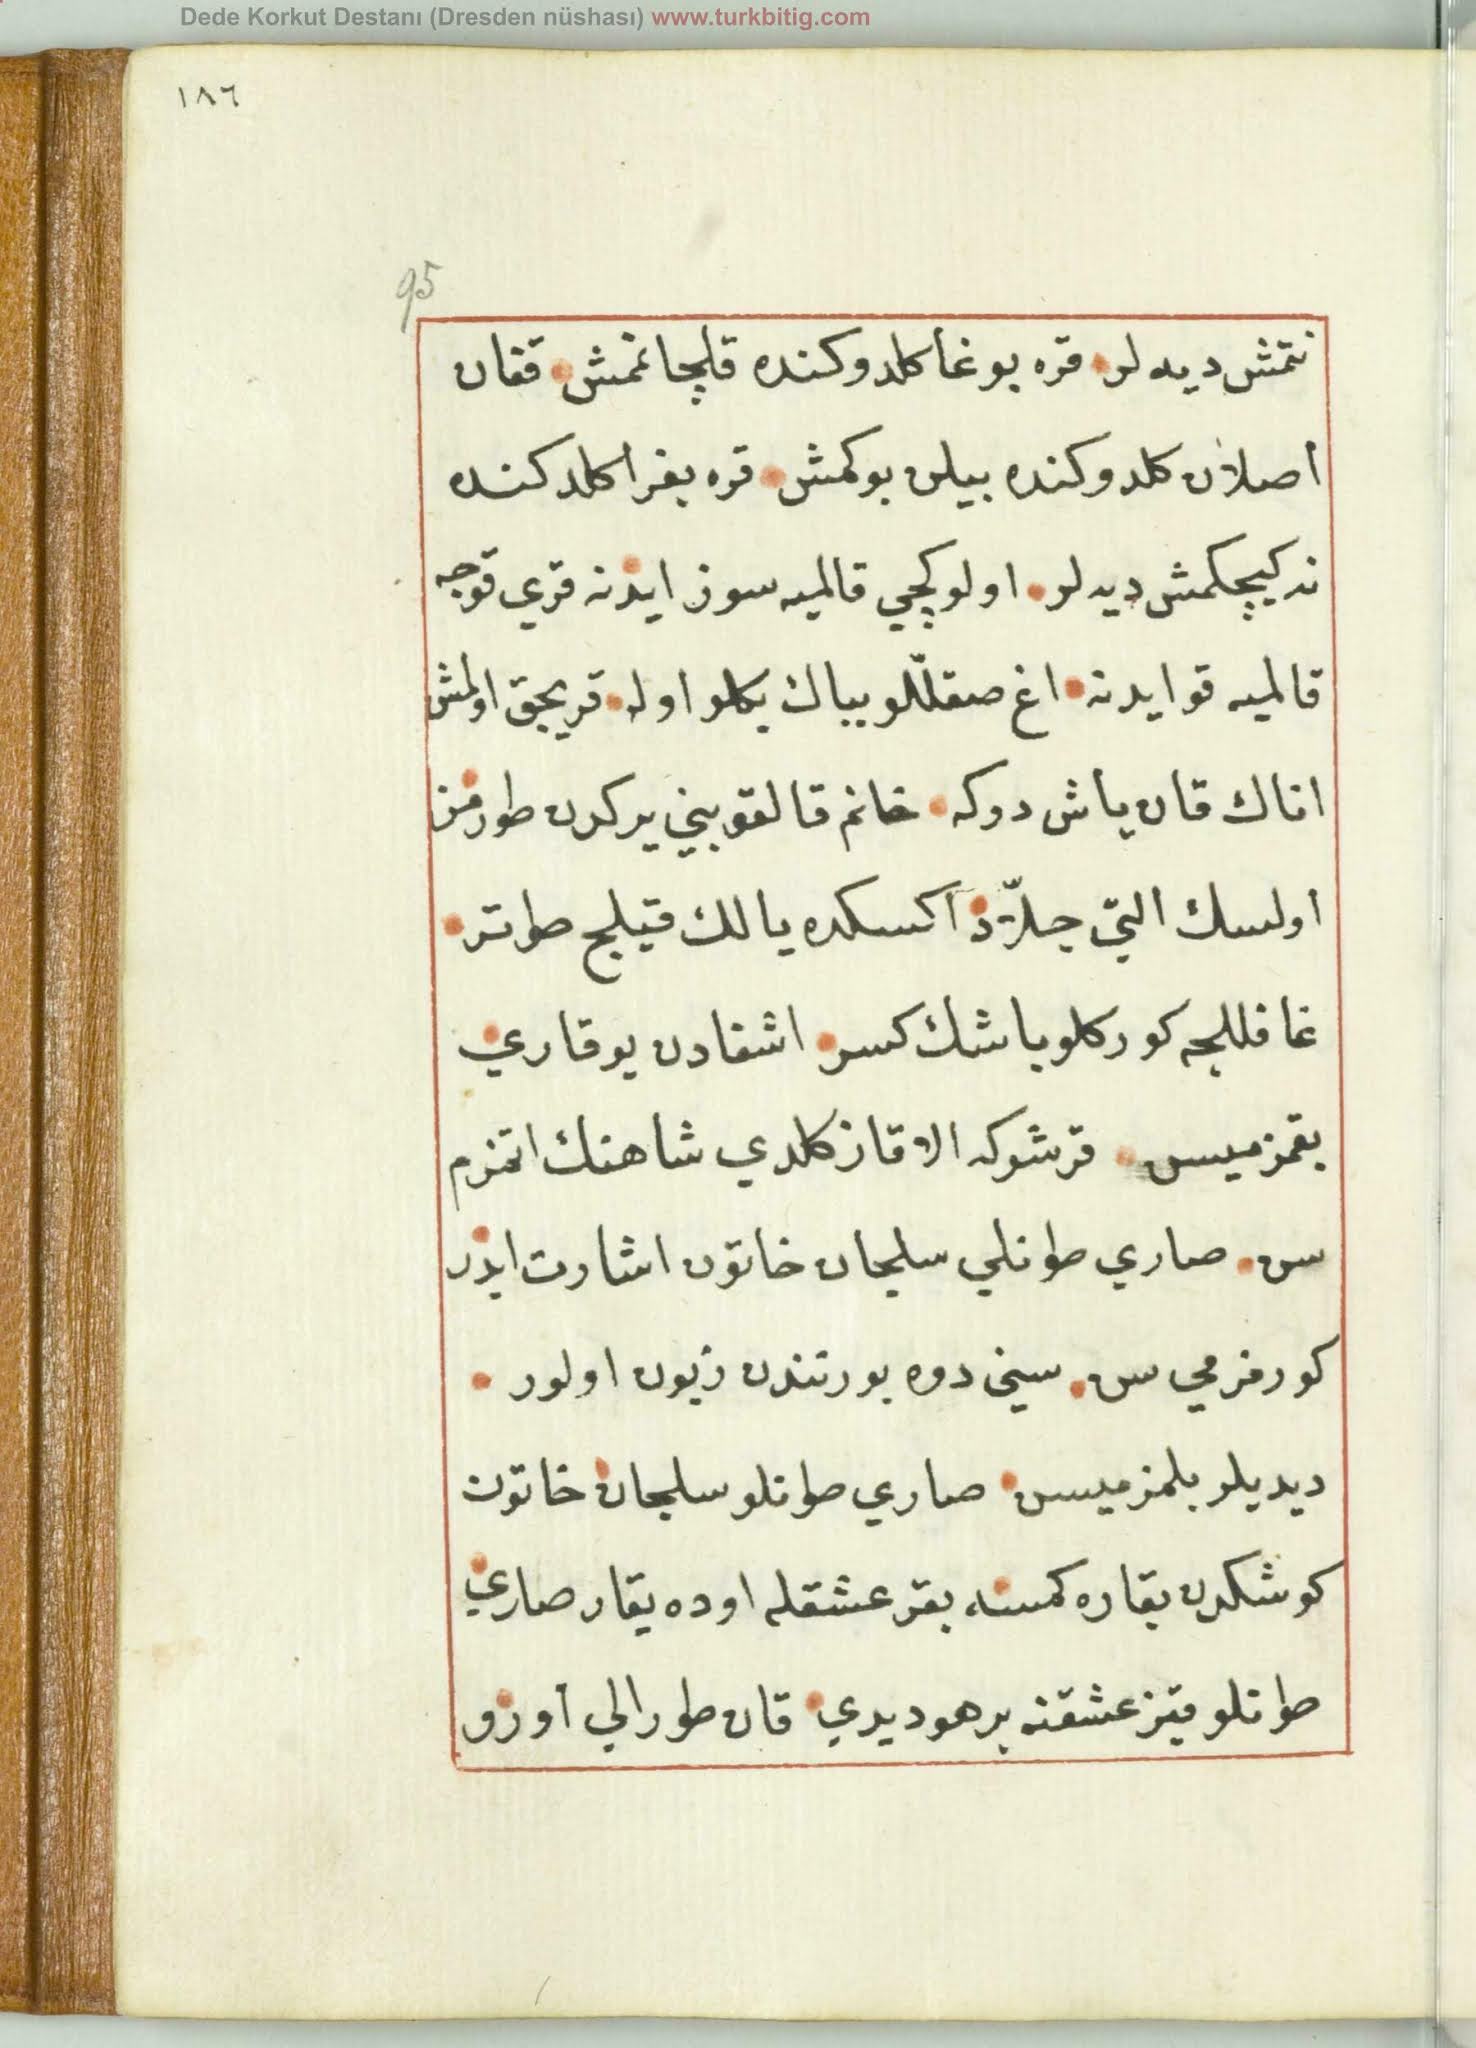 Dede Korkut Destanı (Dresden nüshası) www.turkbitig.com
١٨٦
95
نتمش ديه لر قره بوغا كلدوكنده قلچانمش قغان
اصلان كلدوكنده بيلن بوكمش قره بغرا كلدكنده
نه كيچكمش ديدلر اولو كچي قالميه سوز ايدنه قري قوجه
قالميه قو ايدنه اغ صقللّلو بباك بكلو اوله قريجق اولمش
اناك قان ياش دوكه خانم قالقوبني يركدن طورمز
اولسك التي جلّاد اكسكده يالك قيلج طوتر
غافللجه كوركلو باشك كسر اشغادن يوقاري
بقمزميسن قرشوكه الا قاز كلدي شاهنك اتمزم
سن صاري طونلي سلجان خاتون اشارت ايدر
كورمزمي سن سيني دوه بورنندن زبون اولور
ديديلر بلمزميسن صاري طونلو سلجان خاتون
كوشكدن بقاره كمسنه بقر عشقله اوده يقار صاري
طونلو قيز عشقنه برهو ديدي قان طورالي اورو